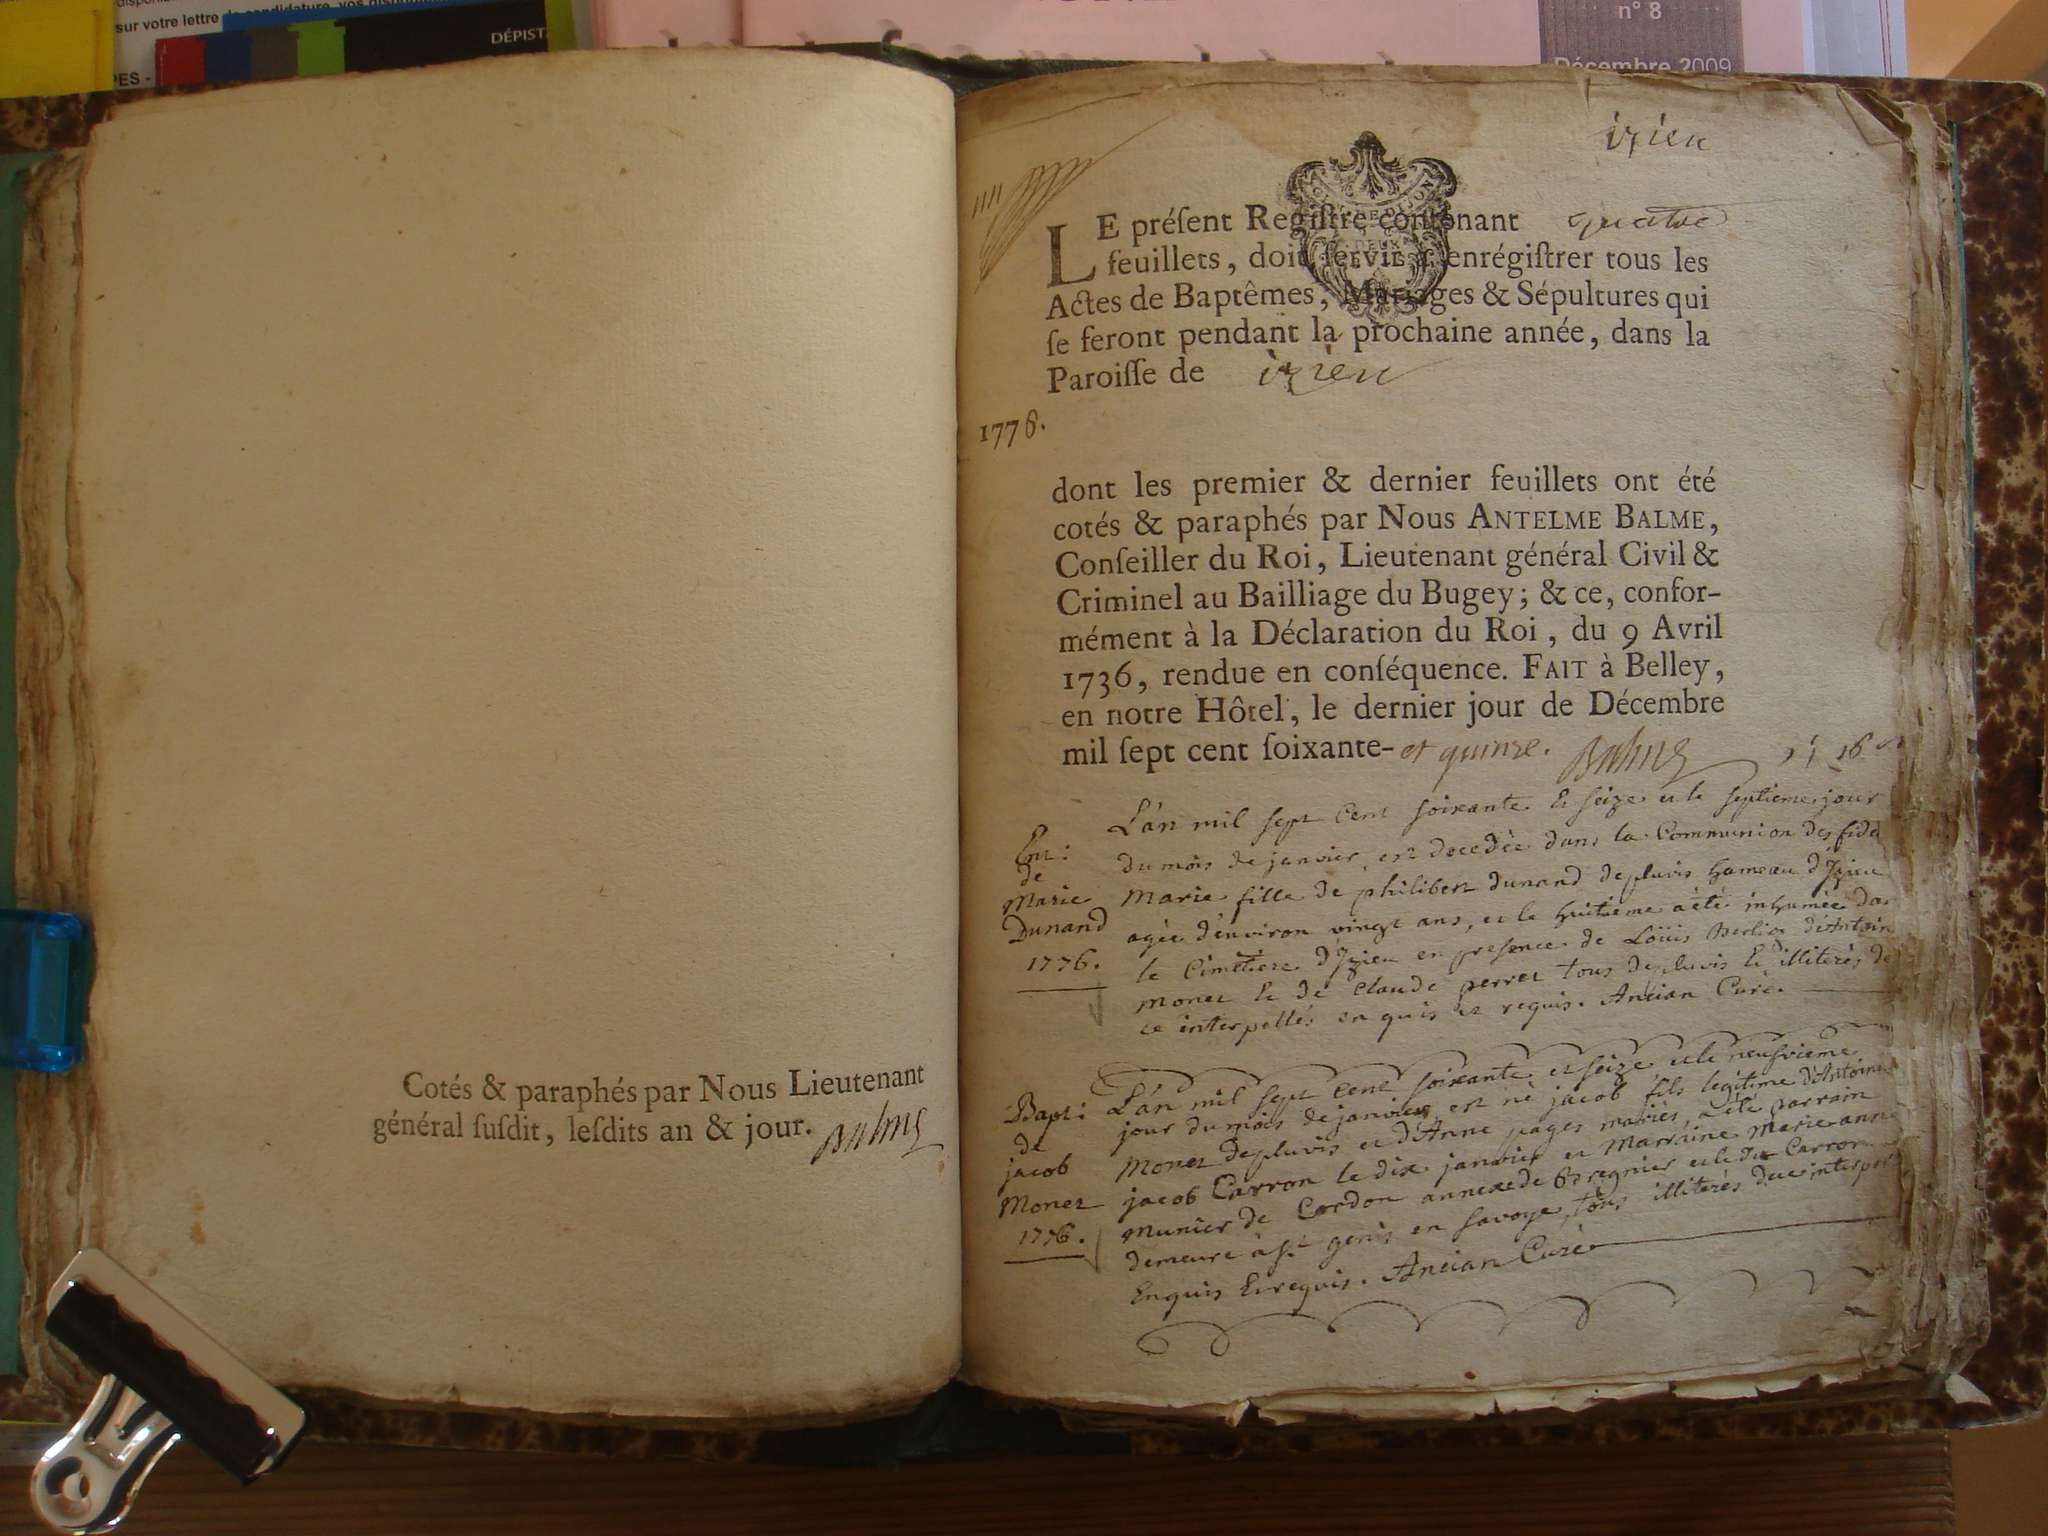 sur votre lettre de candidature, vos
DÉPIST
PES -
n° 8
Décembre 2009
Cotés & paraphés par Nous Lieutenant
général ſuſdit, leſdits an & jour. Balme
izieu
LE préſent Regiſtre contenant quatre
feuillets, doit ſervir à enrégiſtrer tous les
Actes de Baptêmes, Mariages & Sépultures qui
ſe feront pendant la prochaine année, dans la
Paroiſſe de izieu
1776.
dont les premier & dernier feuillets ont été
cotés & paraphés par Nous ANTELME BALME,
Conſeiller du Roi, Lieutenant général Civil &
Criminel au Bailliage du Bugey; & ce, confor-
mément à la Déclaration du Roi, du 9 Avril
1736, rendue en conſéquence. FAIT à Belley,
en notre Hôtel, le dernier jour de Décembre
mil ſept cent ſoixante- et quinze. Balme
Ent:
de
Marie
Dunand
1776.
L'an mil sept Cent soixante et seize et le septieme jour
du mois de janvier est decedée dans la Communion des fidel
Marie fille de philibert Dunand de pluvis hameau d'Izieu
agée d'environ vingt ans, et le huitieme a été inhumée dans
le Cimetiere d'Izieu en presence de Loüis Berlioz d'Antoin
Monet et de Claude perret tous de pluvis et illiterés de
ce interpellés enquis et requis. Ancian Curé.
Bapt:
de
jacob
Monet
1776.
L'an mil sept Cent soixante et seize et le neufvieme
jour du mois de janvier est né jacob fils legitime d'Antoine
Monet de pluvis et d'Anne pages mariés, a été parrain
jacob Carron le dix janvier et Marraine Marie anne
Munier de Cordon annexe de Bregnier et le dit Carron
demeure à St genis en Savoye, tous illiterés de ce interpel
Enquis Et requis. Ancian Curé